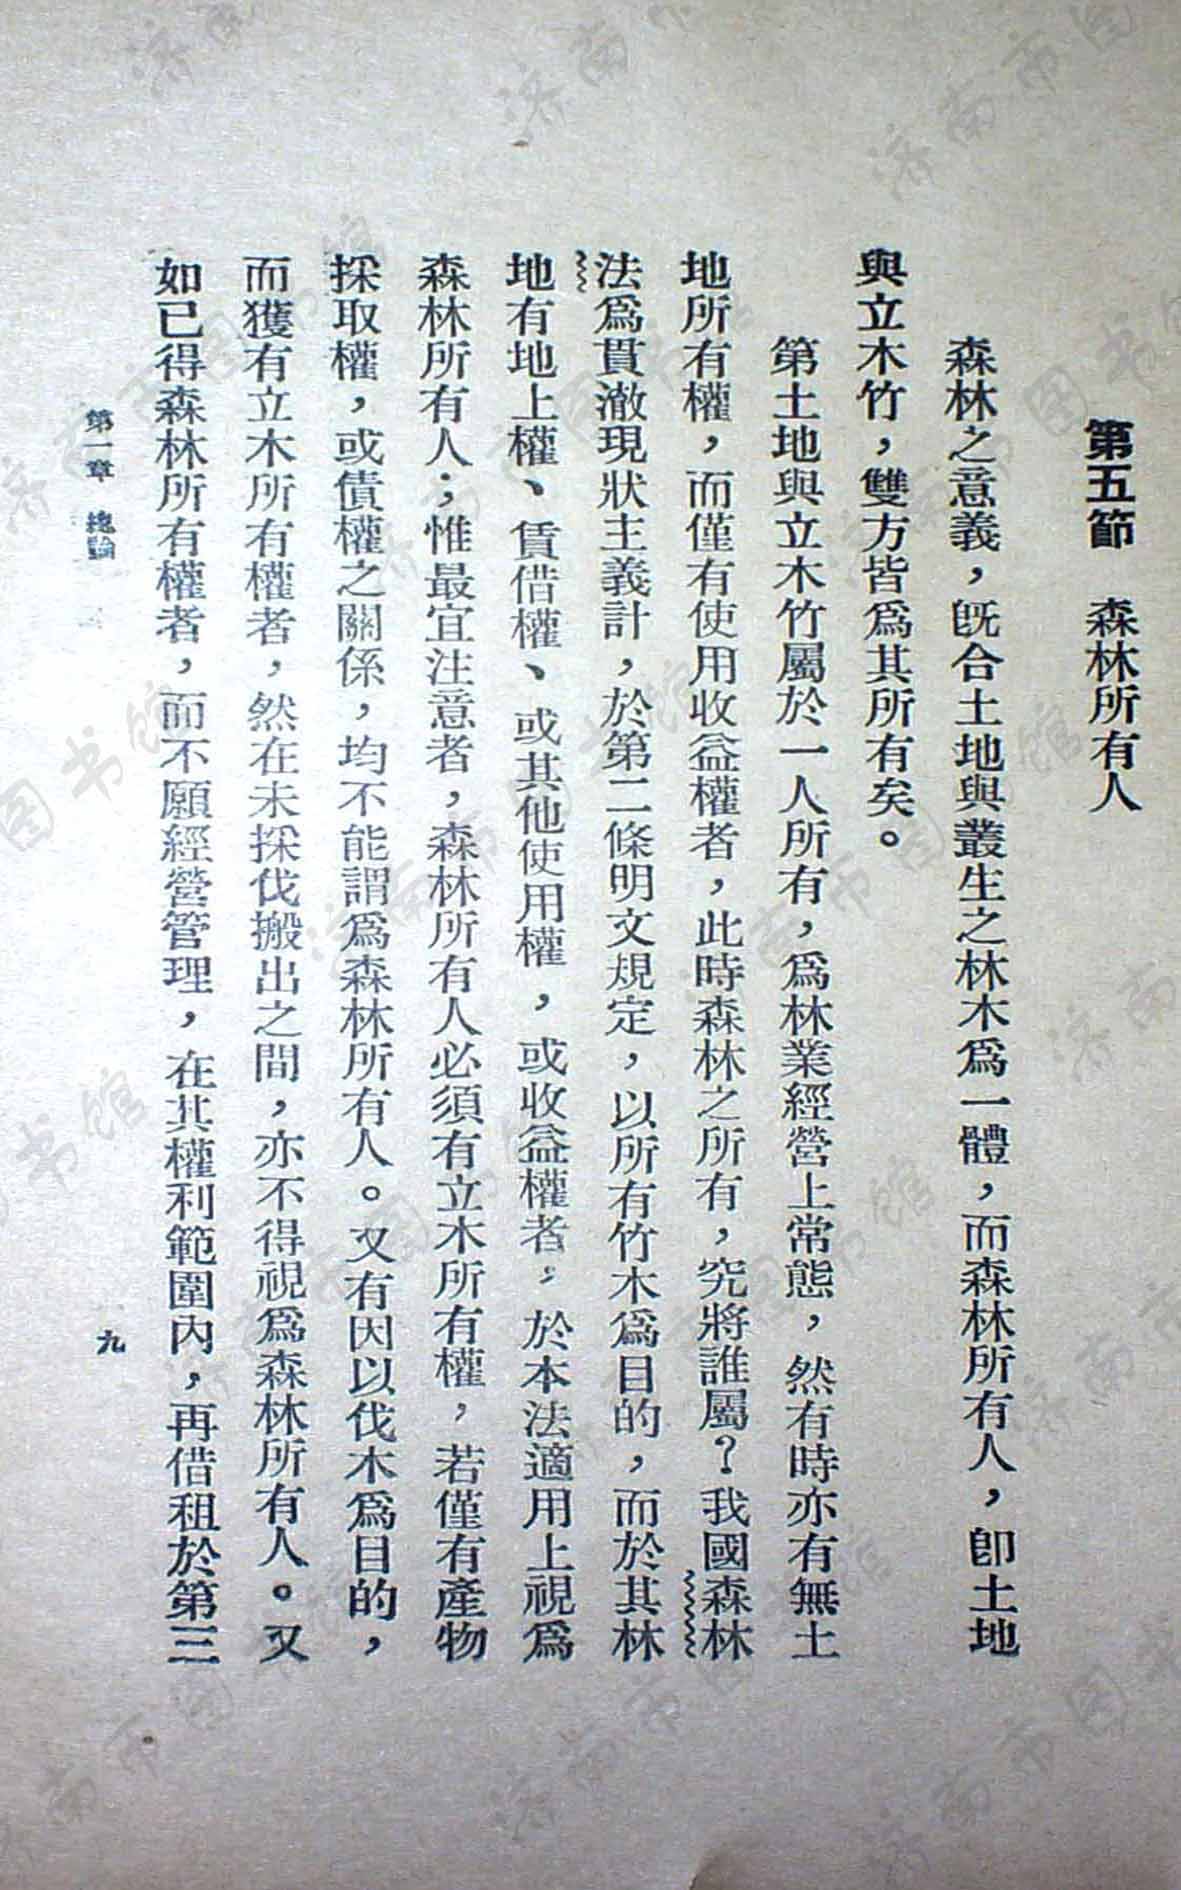 第五節　森林所有人
森林之意義，既合土地與叢生之林木爲一體，而森林所有人，卽土地
與立木竹，雙方皆爲其所有矣。
第土地與立木竹屬於一人所有，爲林業經營上常態，然有時亦有無土
地所有權，而僅有使用收益權者，此時森林之所有，究將誰屬？我國森林
法爲貫澈現狀主義計，於第二條明文規定，以所有竹木爲目的，而於其林
地有地上權、賃借權、或其他使用權，或收益權者。於本法適用上視爲
森林所有人；惟最宜注意者，森林所有人必須有立木所有權，若僅有產物
採取權，或債權之關係，均不能謂爲森林所有人。又有因以伐木爲目的，
而獲有立木所有權者，然在未採伐搬出之間，亦不得視爲森林所有人。又
如已得森林所有權者，而不願經營管理，在其權利範圍內，再借租於第三
第一章　總論
九
济南市图书馆